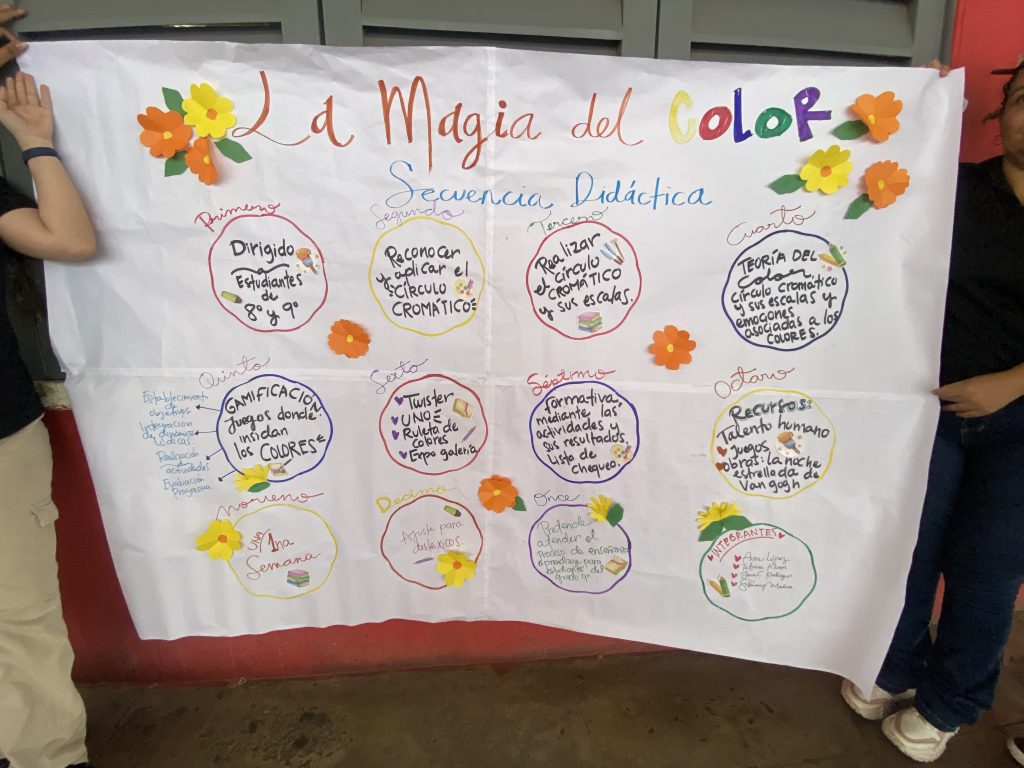 La Magia del Color
Secuencia Didáctica
Primero
Dirigido
a
Estudiantes
de
8º y 9º
Segundo
Reconocer
y aplicar el
CÍRCULO
CROMÁTICO
Tercero
Realizar
el círculo
CROMÁTICO
y sus escalas.
Cuarto
TEORÍA DEL
Color
círculo cromático
y sus escalas y
emociones
asociadas a los
COLORES.
Quinto
GAMIFICACIÓN
Juegos donde
insidan
los COLORES
Establecimiento
de
objetivos
Integración
de dinámicas
Lúdicas
Realización
de
actividades
Evaluación
Progresiva
Sexto
Twister
UNO
Ruleta de
Colores
Expo galería
Séptimo
Formativa
mediante las
actividades y
sus resultados.
Lista de
chequeo.
Octavo
Recursos:
Talento humano
Juegos
obras: La noche
estrellada de
Van gogh
Noveno
UNA 1na
Semana
Décimo
Ajuste para
disléxicos.
Once
Pretende
atender el
Proceso de enseñanza
aprendizaje para
estudiantes del
grado 9º
INTEGRANTES